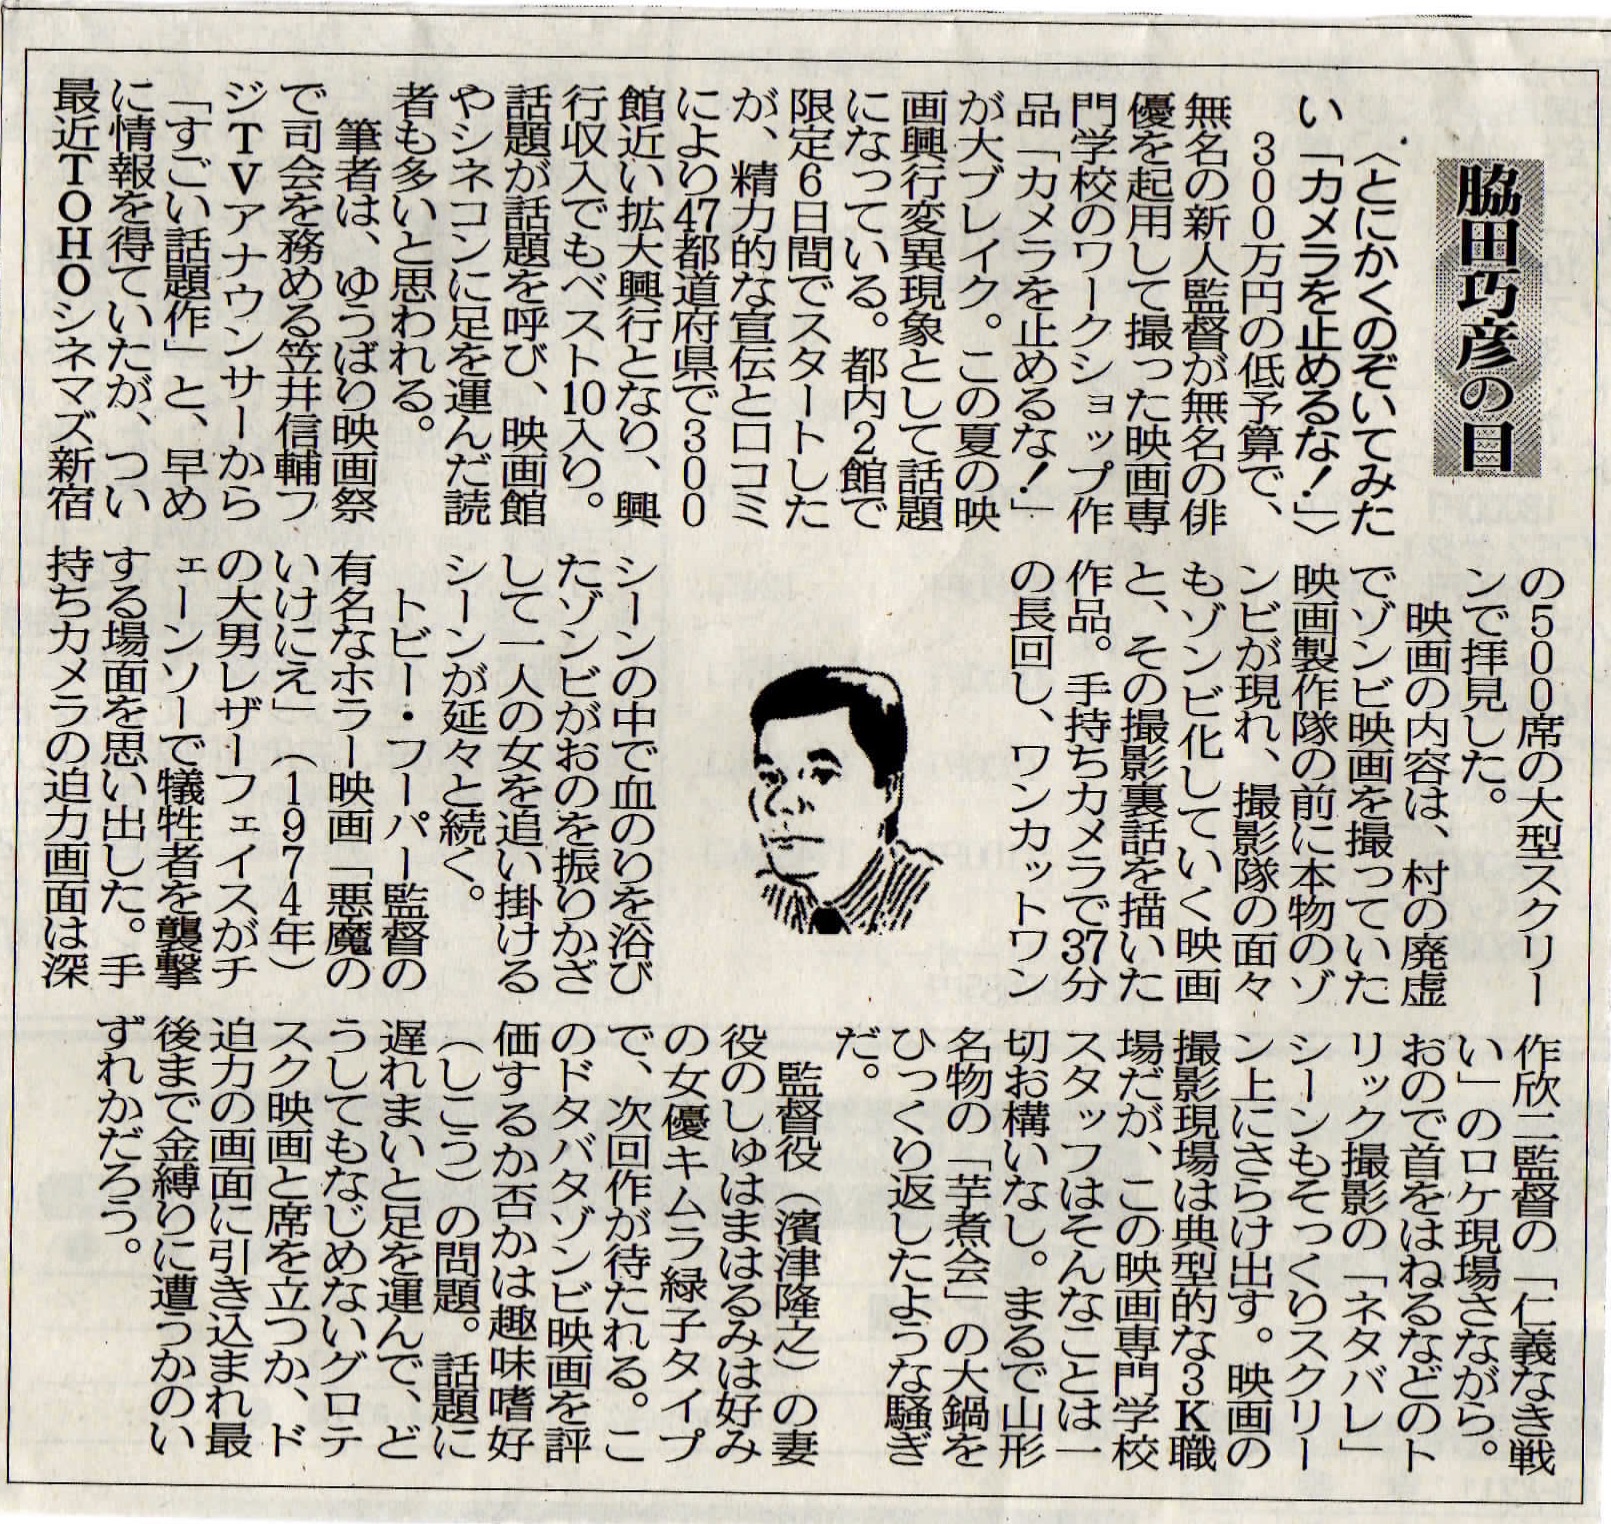 脇田巧彦の目
〈とにかくのぞいてみた
い「カメラを止めるな！」〉
３００万円の低予算で、
無名の新人監督が無名の俳
優を起用して撮った映画専
門学校のワークショップ作
品「カメラを止めるな！」
が大ブレイク。この夏の映
画興行変異現象として話題
になっている。都内２館で
限定６日間でスタートした
が、精力的な宣伝と口コミ
により47都道府県で３００
館近い拡大興行となり、興
行収入でもベスト10入り。
話題が話題を呼び、映画館
やシネコンに足を運んだ読
者も多いと思われる。
筆者は、ゆうばり映画祭
で司会を務める笠井信輔フ
ジＴＶアナウンサーから
「すごい話題作」と、早め
に情報を得ていたが、つい
最近ＴＯＨＯシネマズ新宿
の５００席の大型スクリー
ンで拝見した。
映画の内容は、村の廃虚
でゾンビ映画を撮っていた
映画製作隊の前に本物のゾ
ンビが現れ、撮影隊の面々
もゾンビ化していく映画
と、その撮影裏話を描いた
作品。手持ちカメラで37分
の長回し、ワンカットワン
シーンの中で血のりを浴び
たゾンビがおのを振りかざ
して一人の女を追い掛ける
シーンが延々と続く。
トビー・フーパー監督の
有名なホラー映画「悪魔の
いけにえ」（１９７４年）
の大男レザーフェイスがチ
ェーンソーで犠牲者を襲撃
する場面を思い出した。手
持ちカメラの迫力画面は深
作欣二監督の「仁義なき戦
い」のロケ現場さながら。
おので首をはねるなどのト
リック撮影の「ネタバレ」
シーンもそっくりスクリー
ン上にさらけ出す。映画の
撮影現場は典型的な３Ｋ職
場だが、この映画専門学校
スタッフはそんなことは一
切お構いなし。まるで山形
名物の「芋煮会」の大鍋を
ひっくり返したような騒ぎ
だ。
監督役（濱津隆之）の妻
役のしゅはまはるみは好み
の女優キムラ緑子タイプ
で、次回作が待たれる。こ
のドタバタゾンビ映画を評
価するか否かは趣味嗜好
（しこう）の問題。話題に
遅れまいと足を運んで、ど
うしてもなじめないグロテ
スク映画と席を立つか、ド
迫力の画面に引き込まれ最
後まで金縛りに遭うかのい
ずれかだろう。